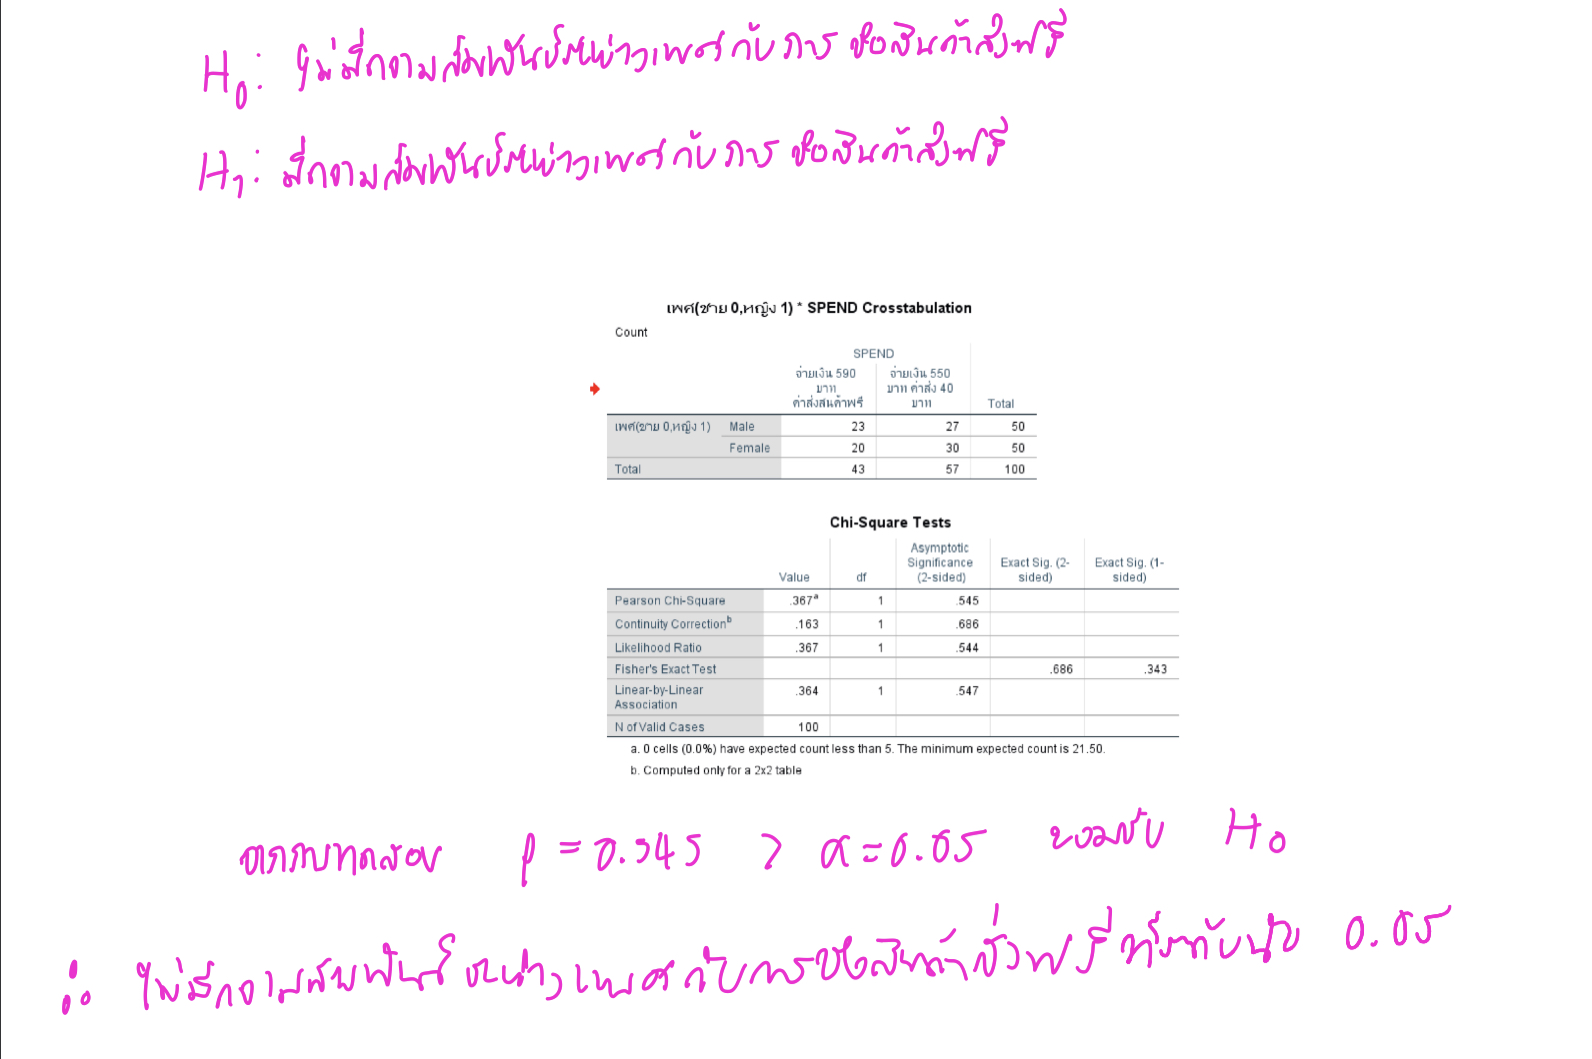 H₀: ไม่มีความสัมพันธ์ระหว่างเพศกับการซื้อสินค้าส่งฟรี
H₁: มีความสัมพันธ์ระหว่างเพศกับการซื้อสินค้าส่งฟรี
เพศ(ชาย 0,หญิง 1) * SPEND Crosstabulation
Count
SPEND
จ่ายเงิน 590 บาท ค่าส่งสนค้าฟรี จ่ายเงิน 550 บาท ค่าส่ง 40 บาท Total
เพศ(ชาย 0,หญิง 1) Male 23 27 50
Female 20 30 50
Total 43 57 100
Chi-Square Tests
Value df Asymptotic Significance (2-sided) Exact Sig. (2-sided) Exact Sig. (1-sided)
Pearson Chi-Square .367ᵃ 1 .545
Continuity Correctionᵇ .163 1 .686
Likelihood Ratio .367 1 .544
Fisher's Exact Test .686 .343
Linear-by-Linear Association .364 1 .547
N of Valid Cases 100
a. 0 cells (0.0%) have expected count less than 5. The minimum expected count is 21.50.
b. Computed only for a 2x2 table
p = 0.545 > α = 0.05 ยอมรับ H₀
∴ ไม่มีความสัมพันธ์ระหว่างเพศกับการซื้อสินค้าส่งฟรี 0.05